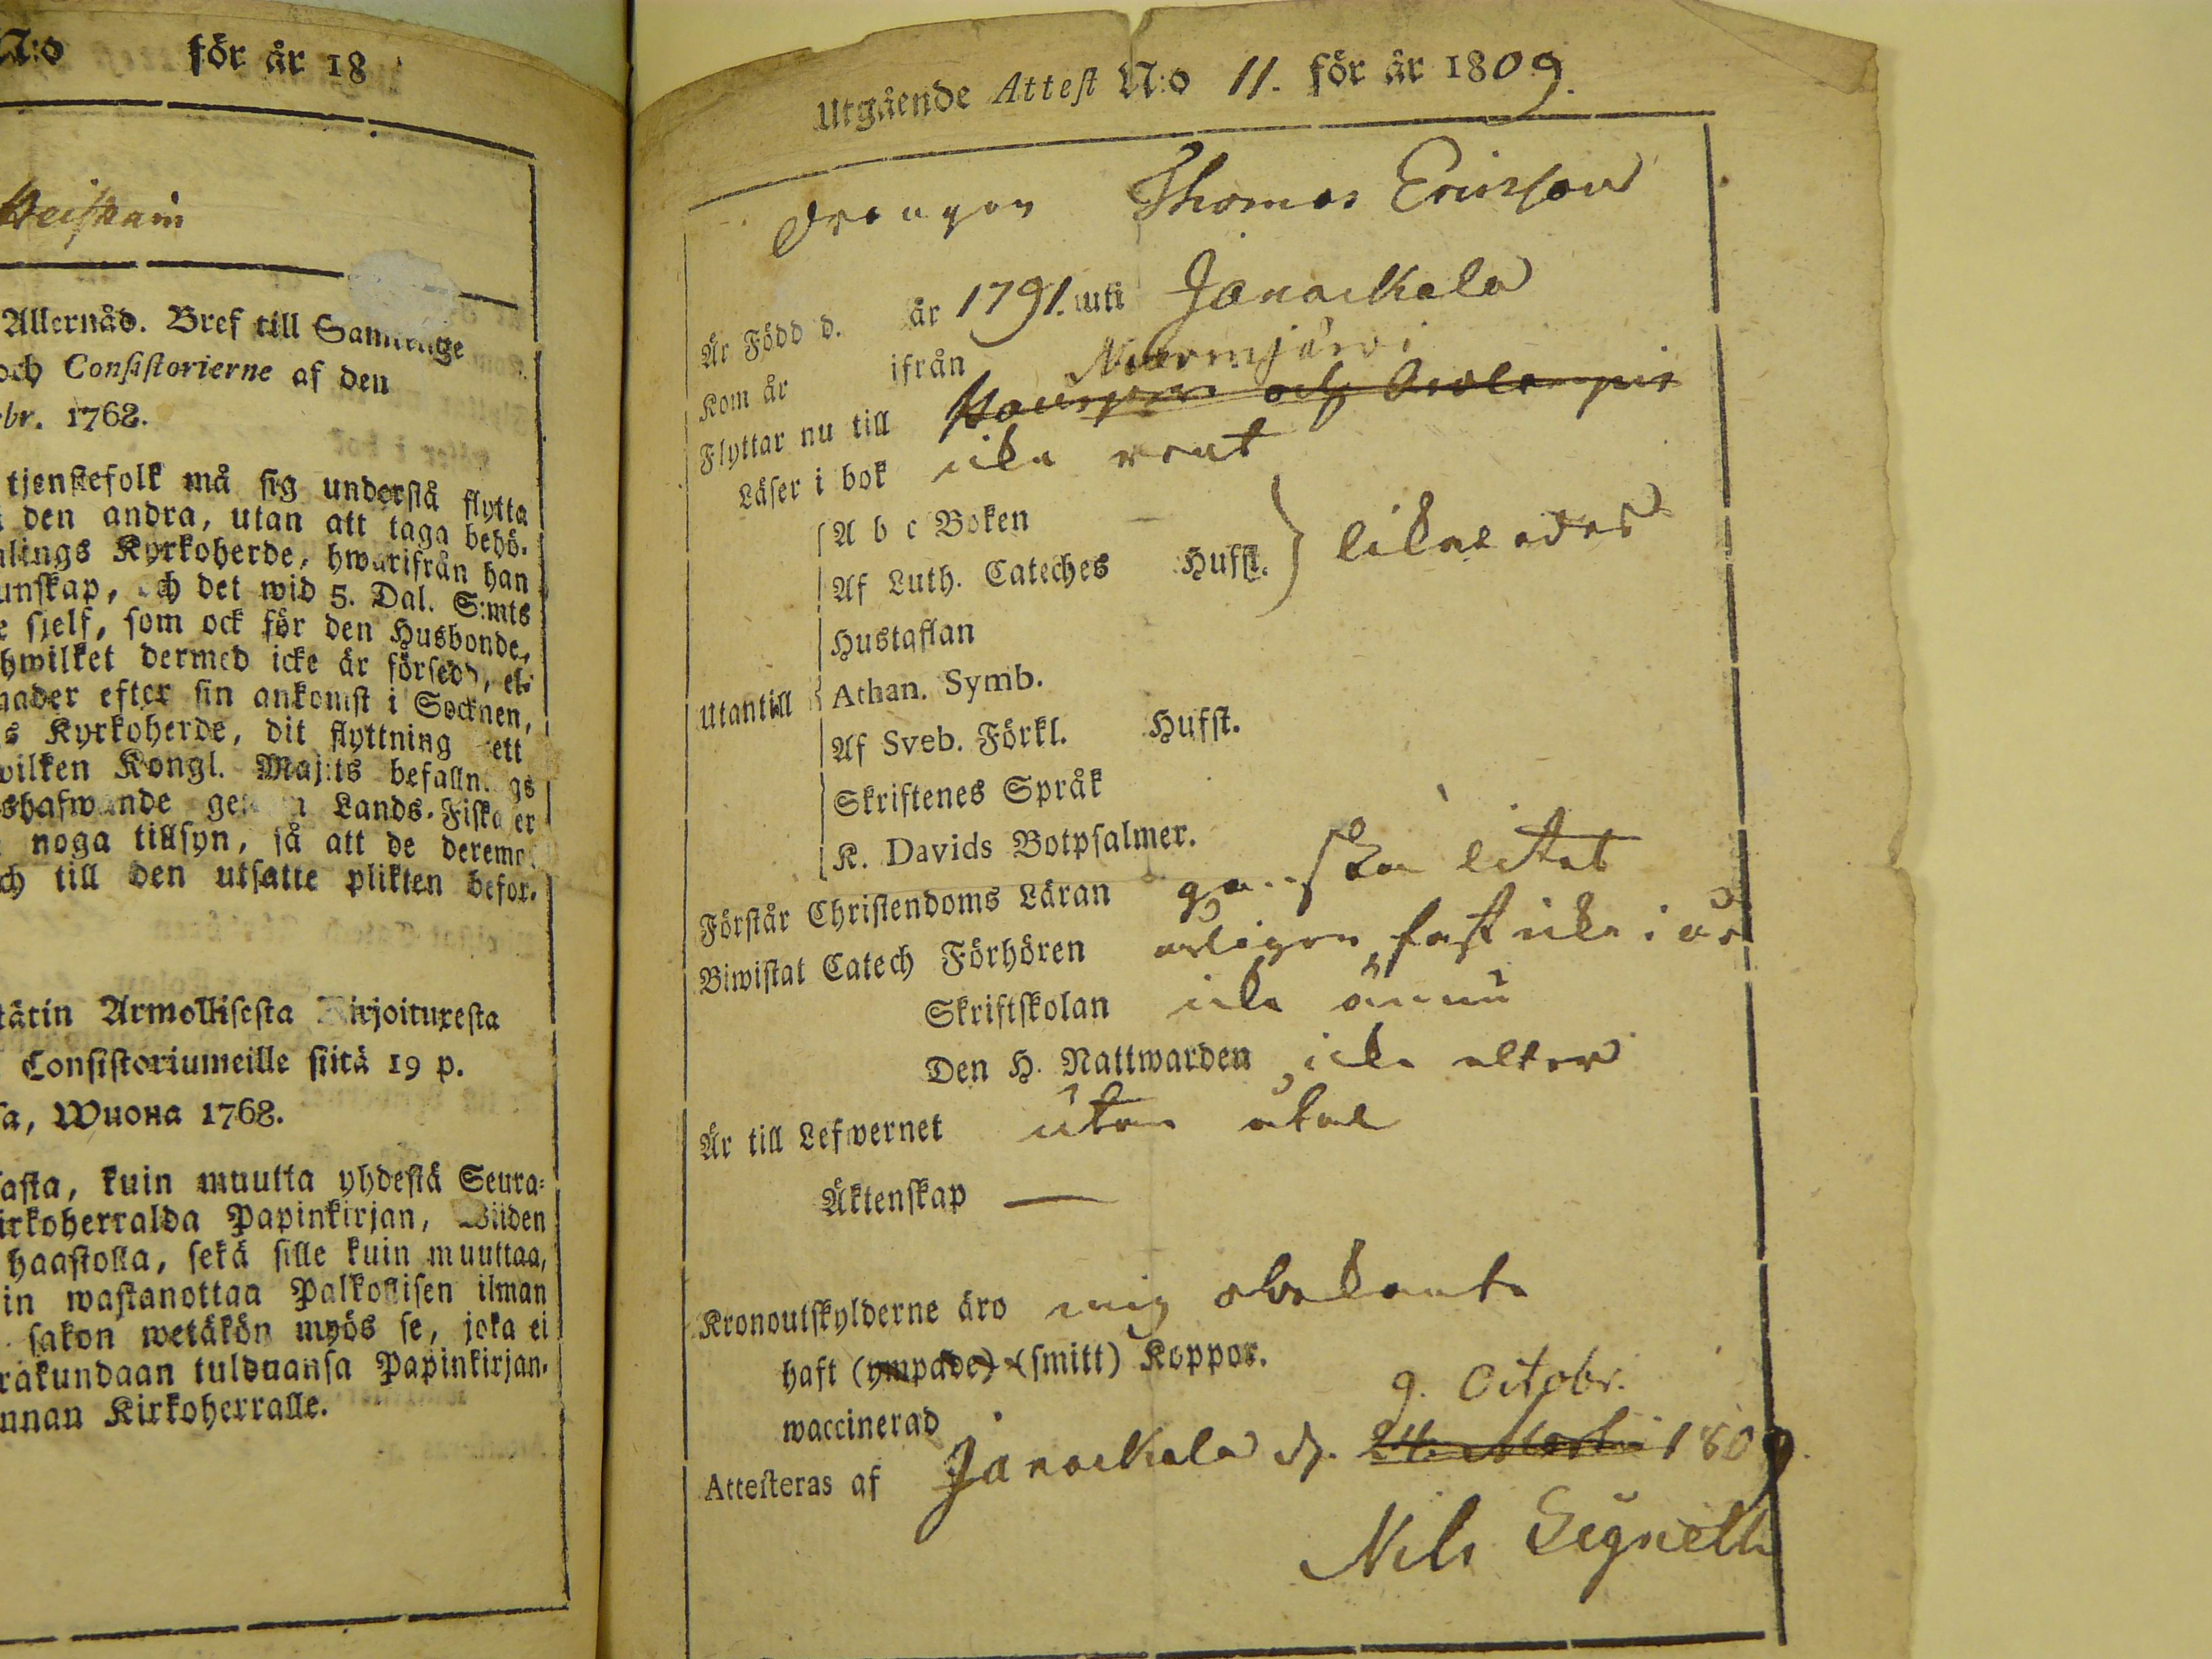 N:o för år 18
Heiskain
Allernåd. Bref till Samtelige
och Consistorierne af den
br. 1762.
tjenstefolk må sig understå flytta
den andra, utan att taga behö-
lings Kyrkoherde, hwarifrån han
unskap, och det wid 5. Dal. S:mts
e sjelf, som ock för den Husbonde,
hwilket dermed icke är försedd, el-
nader efter sin ankomst i Socknen,
s Kyrkoherde, dit flyttning
wilken Kongl. Maj:ts befallnings
shafwande genom Lands-Fiskaler
noga tillsyn, så att de deremot
ch till den utsatte plikten befor.
tätin Armollisesta Kirjoituxesta
Consistoriumeille siitä 19 p.
sa, Wuona 1762.
asta, kuin muutta yhdestä Seura-
irkoherralda Papinkirjan, Wiiden
haastolla, sekä sille kuin muuttaa,
in wastanottaa Palkollisen ilman
sakon wetäkön myös se, joka ei
rakundaan tulduansa Papinkirjan,
unnan Kirkoherralle.
Utgående Attest N:o 11. för år 1809.
Drengen Thomas Ericsson
Är Född d. år 1791. uti Janackala
Kom år ifrån Nurmijärvi
Flyttar nu till och
Läser i bok icke rent
A b c Boken
Af Luth. Cateches Hufst. likaledes
Hustaflan
Utantill Athan. Symb.
Af Sveb. Förkl. Hufst.
Skriftenes Språk
K. Davids Botpsalmer.
Förstår Christendoms Läran ganska litet
Biwistat Catech Förhören årligen, fast icke i år
Skriftskolan icke ännu
Den H. Nattwarden icke eller
Är till Lefwernet utan åtal
Äktenskap —
Kronoutskylderne äro mig obekante
haft (ympade) (smitt) Koppor.
waccinerad 9. Octobr.
Attesteras af Janackala d. 24. Martii 1809.
Nils